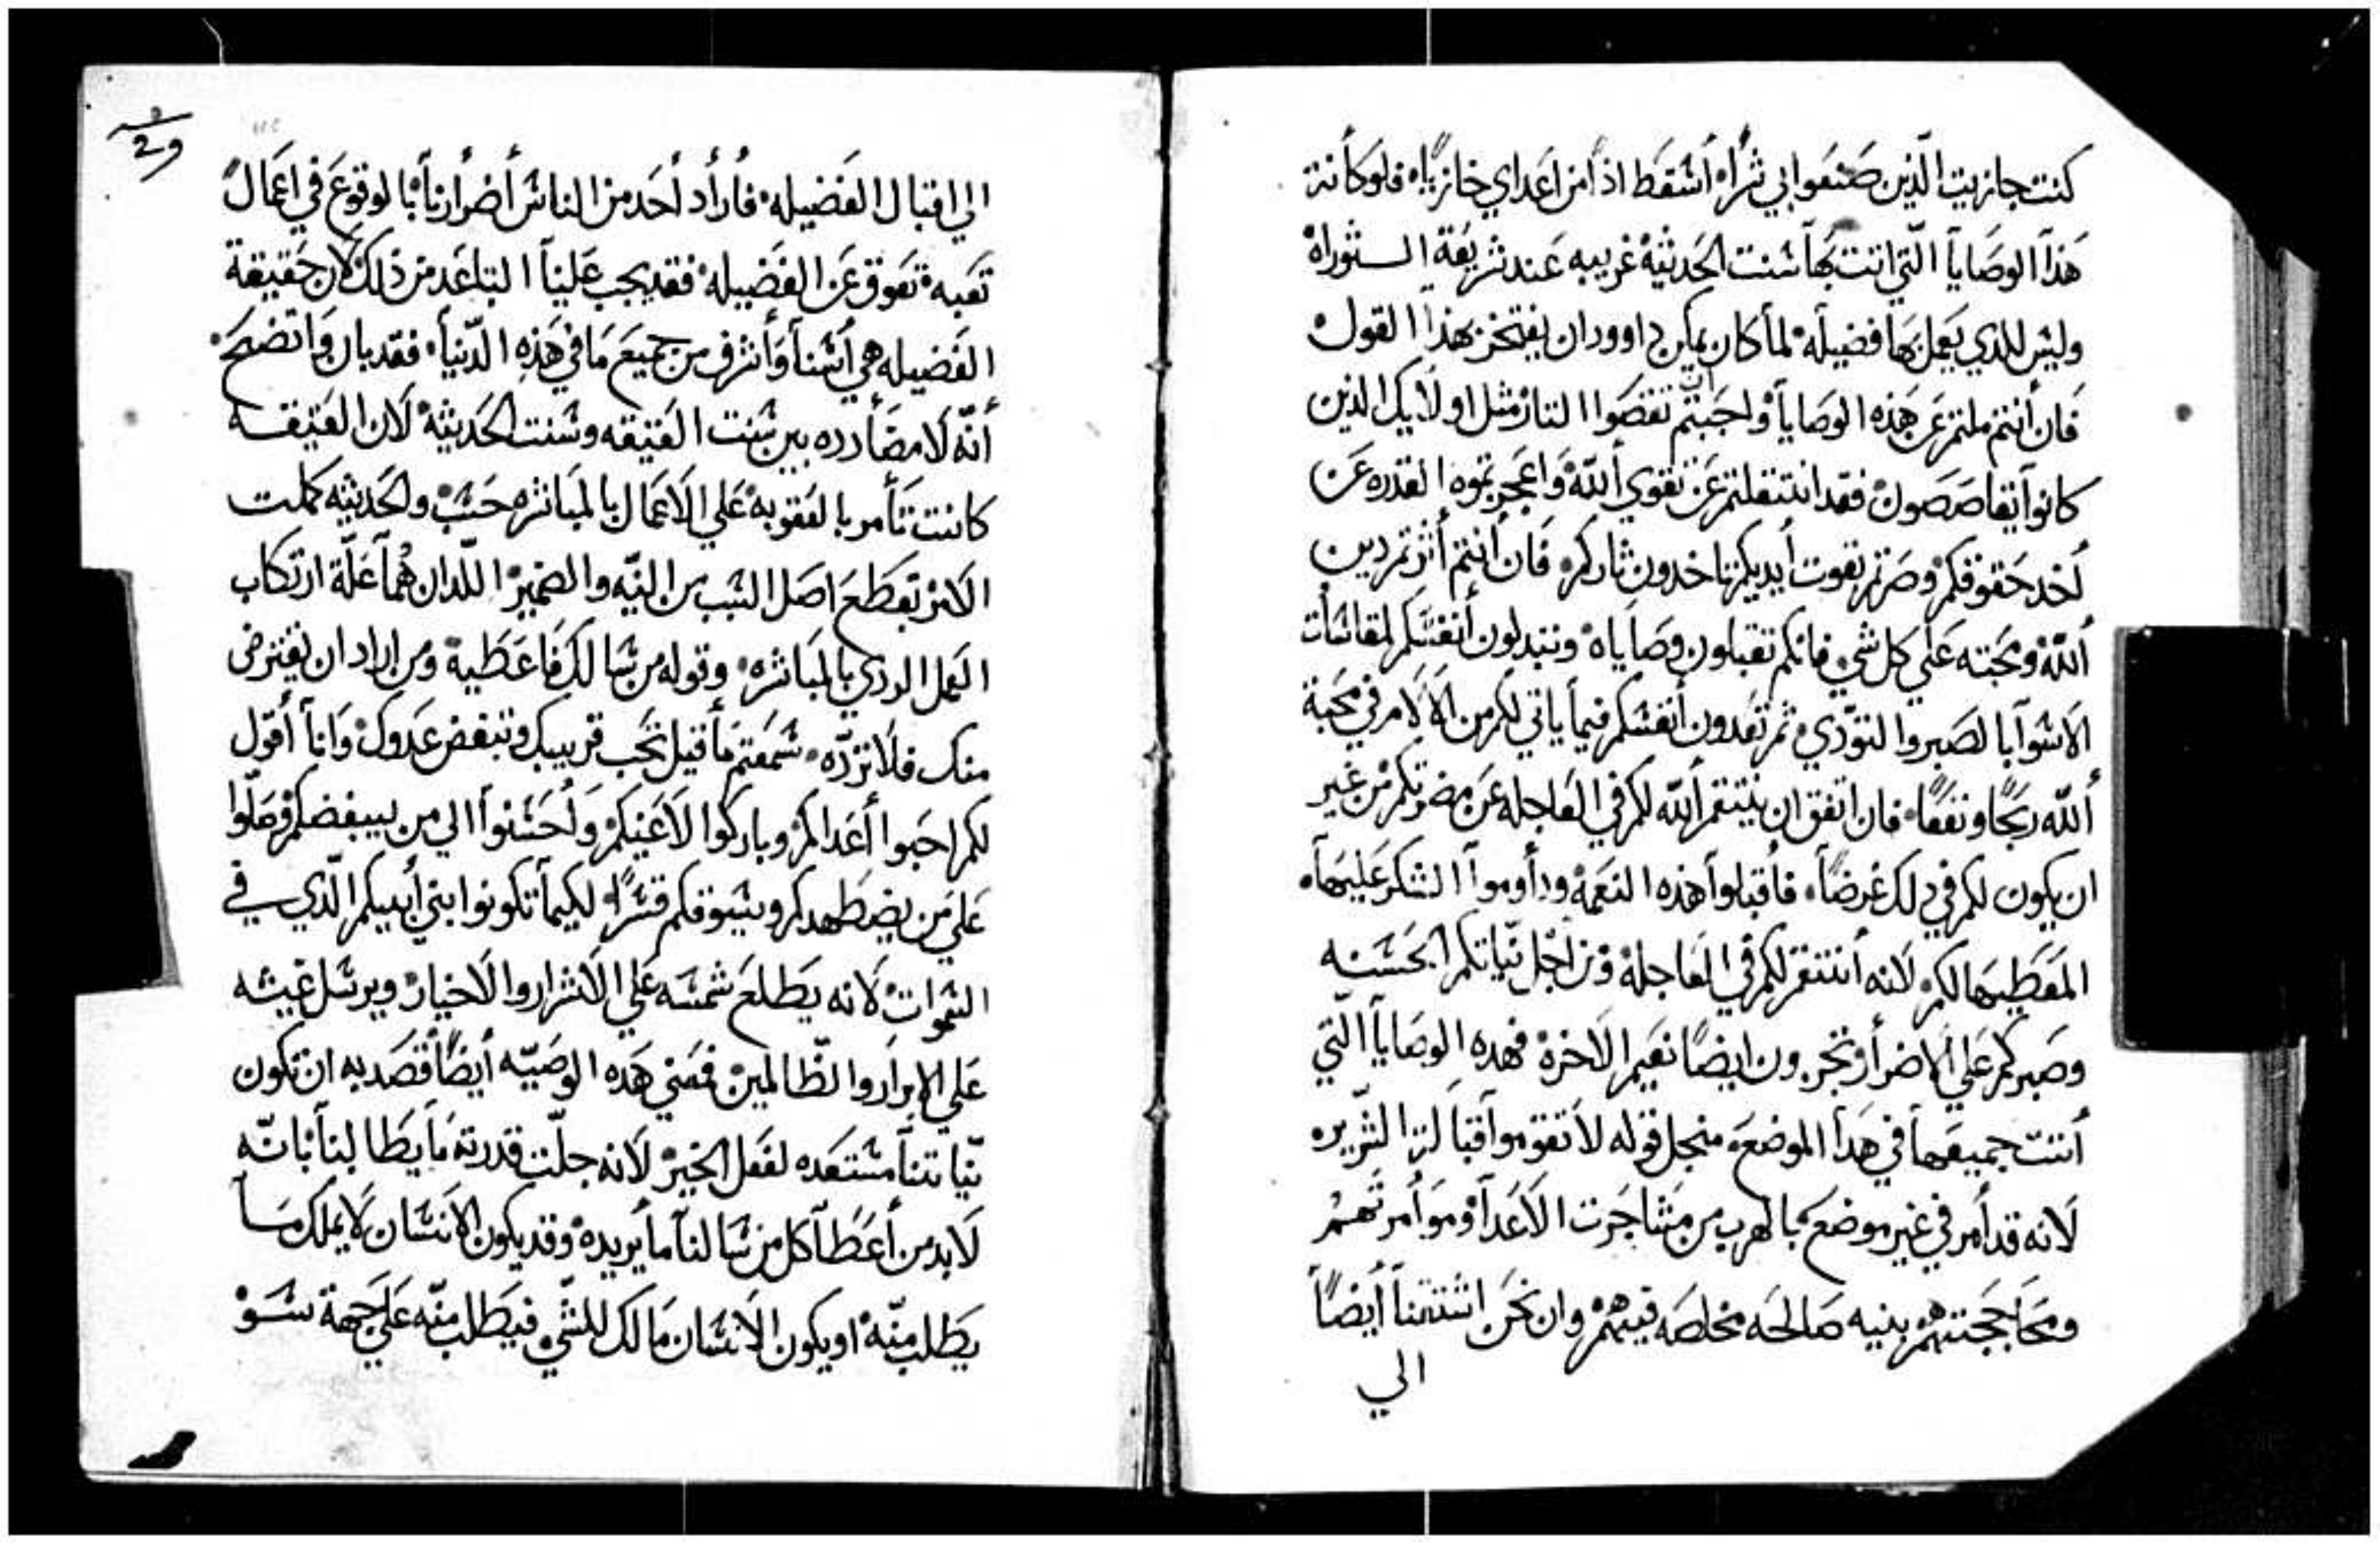 كنت جازيت الذين صنعوا بي شرًا، أسقط اذًا من اعداي خازيًا، فلو كانة
هذا الوصايا التي اتت بها سنت الحديثة غريبه عند شريعة الستوراة
وليس للذي يعمل بها فضيلة لما كان يمكن داوود ان يفتخر بهذا القول
فان أنتم ملتم عن هذه الوصايا واجبتم ان تقصوا التار مثل اولايك الذين
كانوا يتقاصصون فقد انتقلتم عن تقوي الله واعجبتموه القدره عن
أخد حقوقكم وصرتم بقوت أيديكم تاخدون ثاركم، فان أنتم أثرتم دين
ألله ومحبته علي كل شي فانكم تقبلون وصاياه وتبدلون أنفسكم لمقاسات
الاسوا بالصبر والتوّدي ثم تعدون أنفسكم فيما ياتي لكم من الالام في محبة
ألله ربحًا ونفعًا، فان اتفق ان ينتقم ألله لكم في العاجله عن مضرتكم من غير
ان يكون لكم في دلك غرضًا، فاقبلوا هذه النعمة وداوموا الشكر عليها،
المعطيها لكم، لانه أنتقم لكم في العاجلة ومن اجل نيّاتكم الحسنه
وصبركم علي الاضرار وتجربون ايضًا نعيم الاخرة فهده الوصايا التّي
أتت جميعها في هدا الموضع، منجل قوله لا تقوموا قبالة الشرير
لانه قد أمر في غير موضع بالهرب من مشاجرت الاعدا وموامرتهم
ومحاججتهم بنيه صالحه مخلصه فيهم وان نحن استتمنا أيضًا
الي
29
الي اقبال الفضيله، فأراد أحد من الناس أضرارنا بالوقوع في اعمالً
تعبه تعوق عن الفضيله، فقد يجب علينا التباعد من ذلك لان حقيقة
الفضيله هي أسنا وأشرف من جميع ما في هذه الدّنيا، فقد بان واتضح،
أنّه لا مضادرده بين سنت العتيقه وسنت الحديثة لان العتيقه
كانت تأمر بالعقوبة علي الاعمال بالمباشره حسب والحديثه كملت
الامر بقطع اصل السبب من النيّه والضمير اللّدان هُما علّة ارتكاب
العمل الردي بالمباشره، وقوله من سالك فاعطية ومن اراد ان يقترض
منك فلا تردّه، سمعتم ما قيل تحب قريبك وتبغض عدوك وانا أقول
لكم احبوا أعداكم وباركوا لاعنيكم وأحسنوا الي من يبغضكم وصلّوا
علي من يضطهدكم ويسوقكم قسرًا، لكيما تكونوا بني أبيكم الّذي في
السموات لانه يطلع شمسه علي الاشرار والاخيار ويرسل غيثه
علي الابرار والظّالمين فمعني هده الوصيّه أيضًا قصد به ان تكون
نيّاتنا مستعده لفعل الخير لانه جلّت قدرته ما يطالبنا بانّه
لابد من أعطا كل من سالنا ما يريده وقد يكون الانسان لا يملك مسا
يطلب منّه او يكون الانسان مالك للشّي فيطلب منّه علي جهة سسو